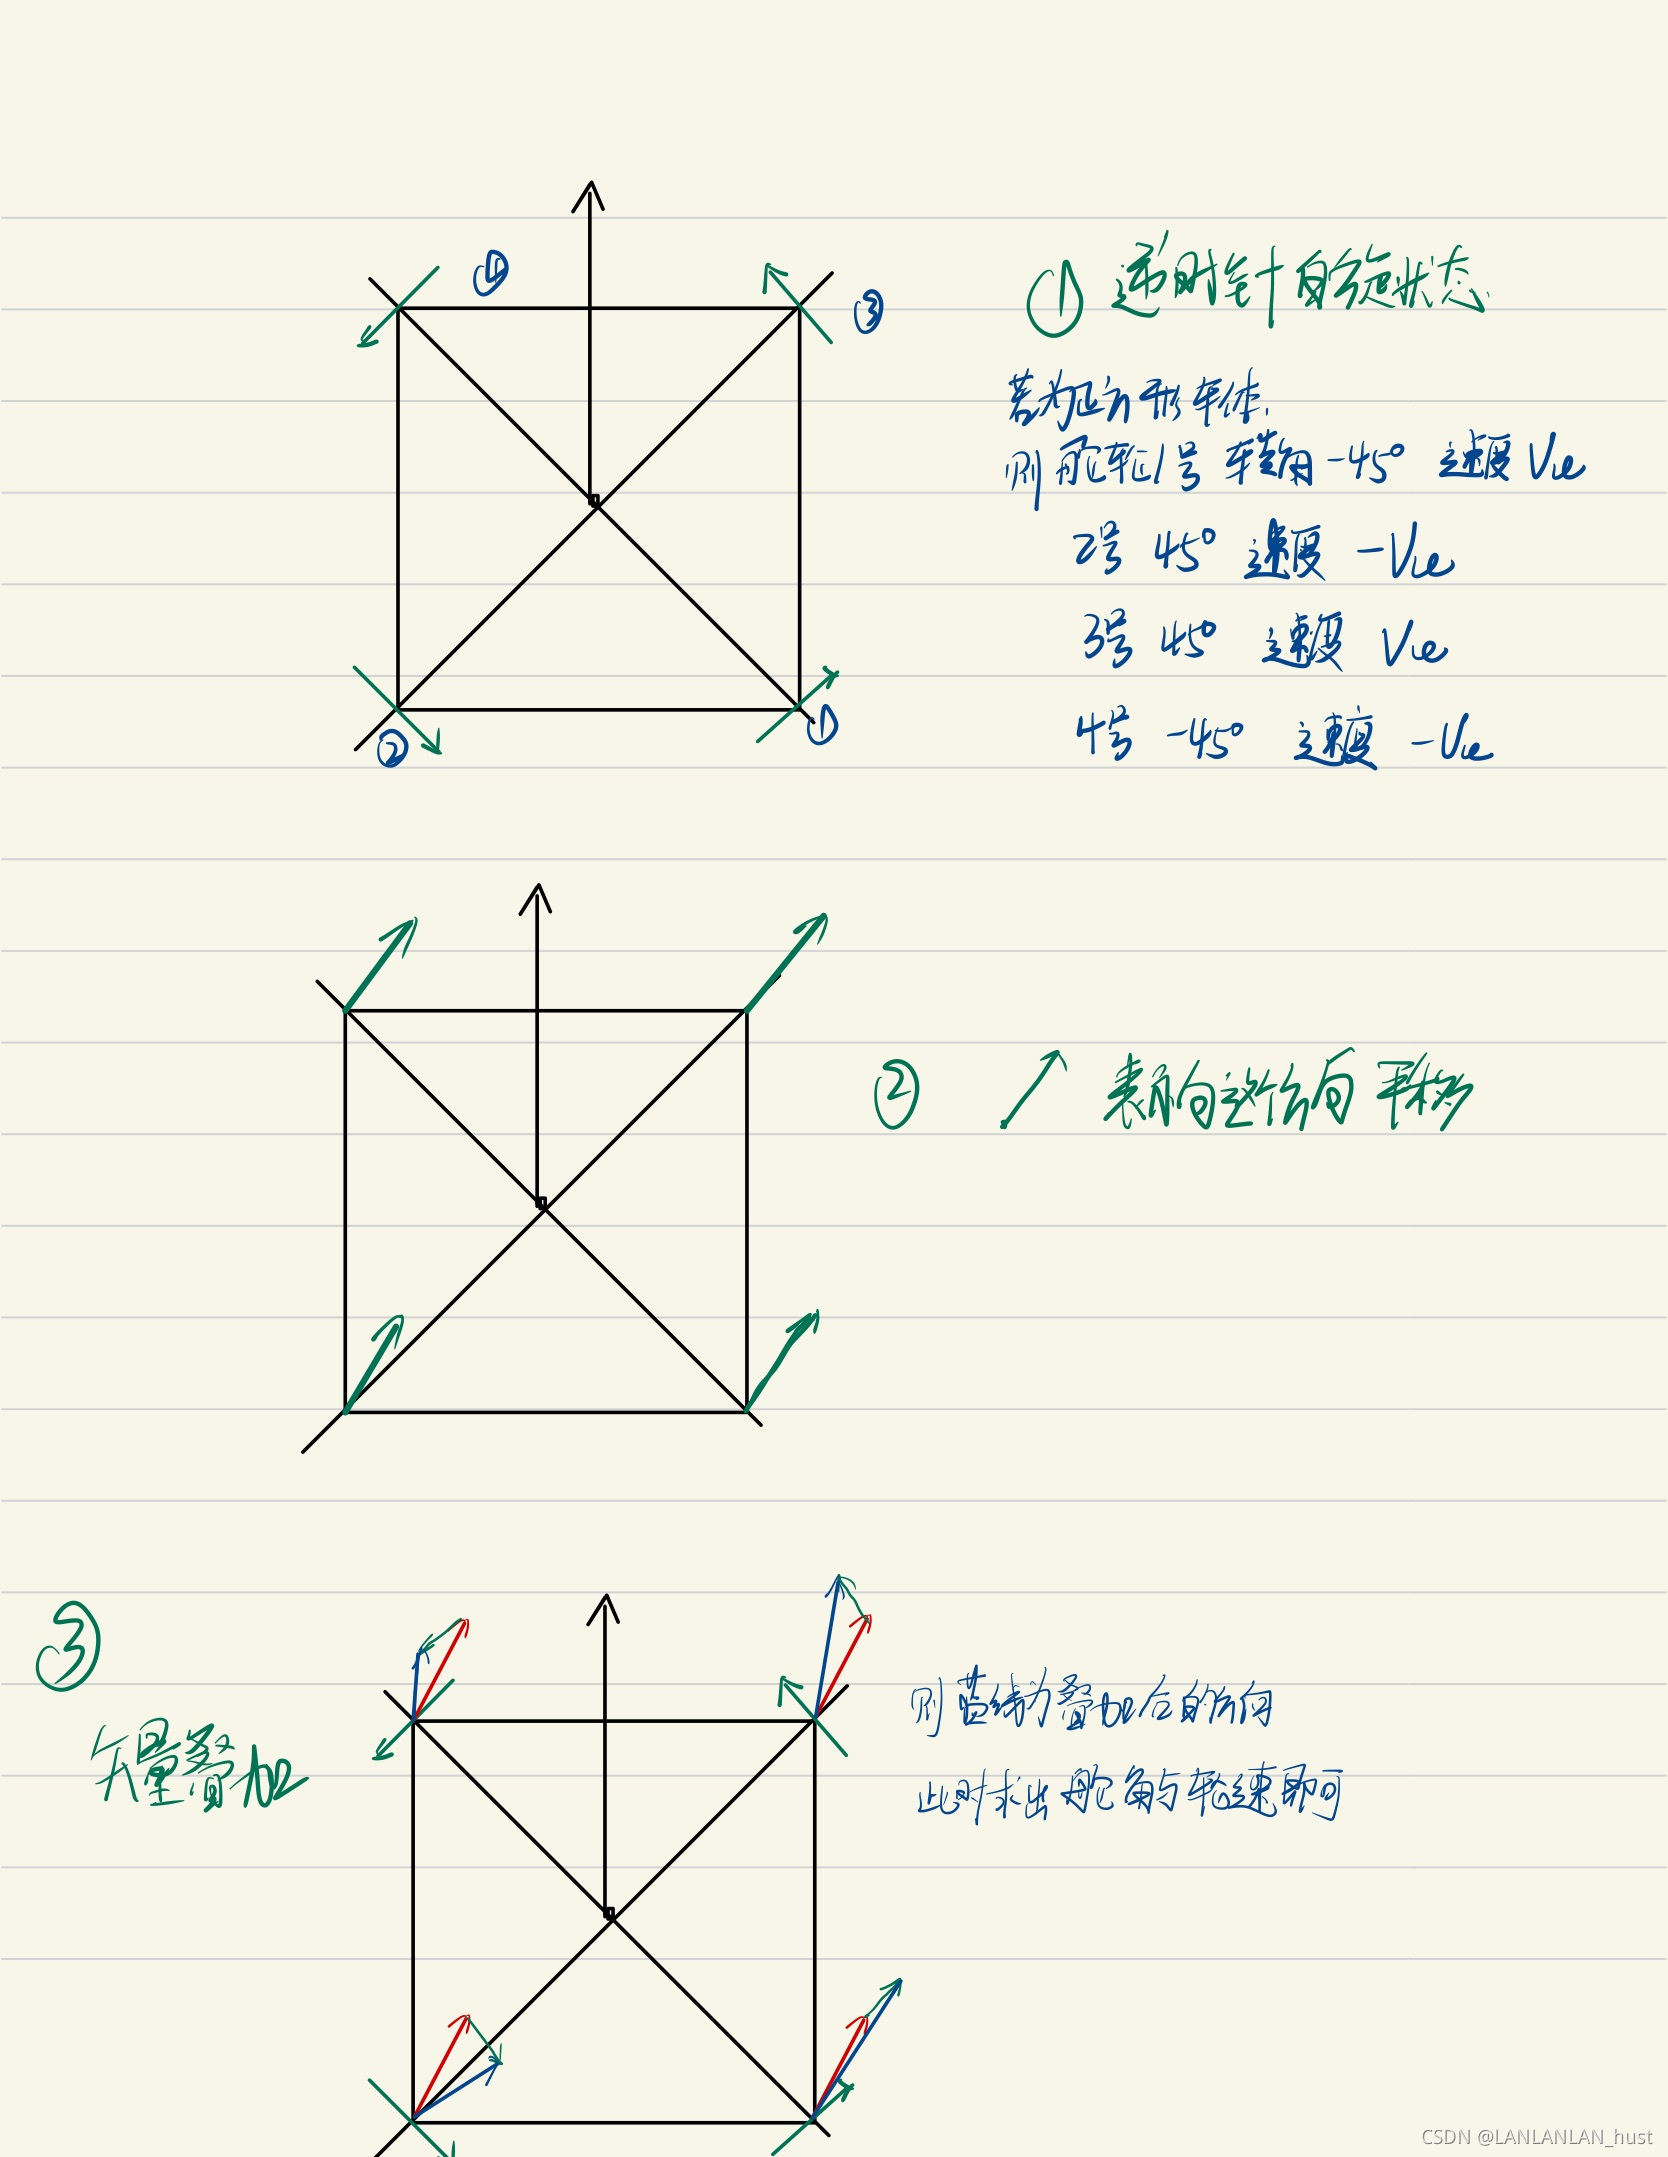 ④
③
① 逆时针自旋状态
若为正方形车体,
则舵轮1号 车转角 -45° 速度 Vω
2号 45° 速度 -Vω
3号 45° 速度 Vω
4号 -45° 速度 -Vω
①
②
② 表示向这个方向平移
③
矢量叠加
则蓝线为叠加后的方向
此时求出舵角与轮速即可
CSDN @LANLANLAN_hust